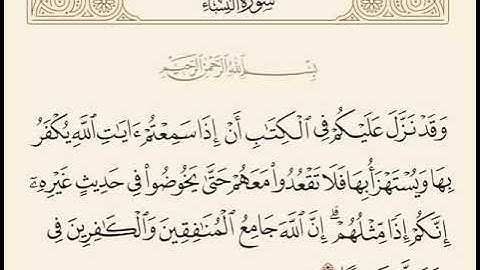 سُورَةُ النِّسَاءِ
بِسْمِ اللَّهِ الرَّحْمَٰنِ الرَّحِيمِ
وَقَدْ نَزَّلَ عَلَيْكُمْ فِي الْكِتَابِ أَنْ إِذَا سَمِعْتُمْ ءَايَاتِ اللَّهِ يُكْفَرُ
بِهَا وَيُسْتَهْزَأُ بِهَا فَلَا تَقْعُدُوا۟ مَعَهُمْ حَتَّىٰ يَخُوضُوا۟ فِي حَدِيثٍ غَيْرِهِۦٓ
إِنَّكُمْ إِذًا مِّثْلُهُمْ ۗ إِنَّ اللَّهَ جَامِعُ الْمُنَافِقِينَ وَالْكَافِرِينَ فِي